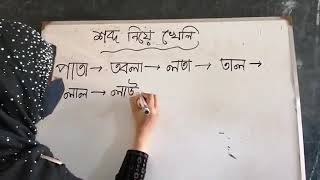 শব্দ নিয়ে খেলি
পাতা → তবলা → লতা → তাল →
লাল → লাউ